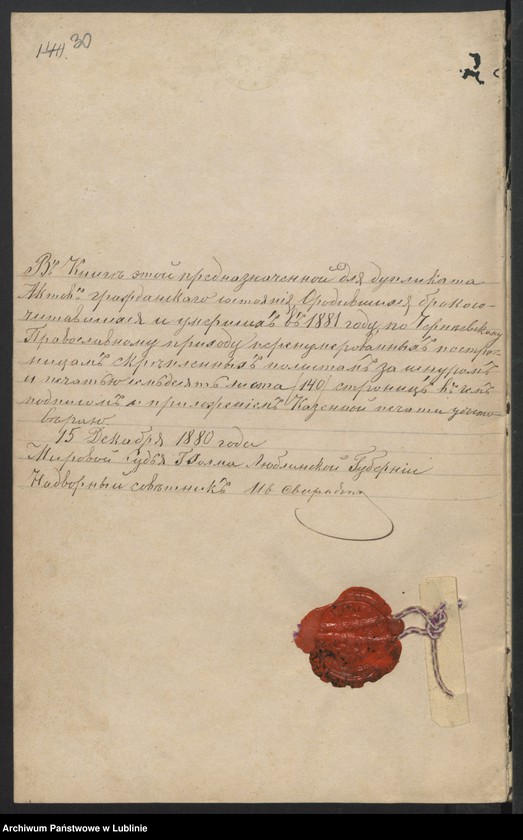 140. 30
Въ Книгѣ этой предназначенной для дупликата
Актовъ гражданскаго состоянія, Сродившихся, бракосо-
читавшихся и умершихъ въ 1881 году, по
Православному приходу перенумерованныхъ постра-
ницамъ скрѣпленныхъ полистамъ за шнуромъ
и печатью семьдесятъ листа /140/ страницъ въ чемъ
подписомъ и приложеніемъ Казенной печати удосто-
вѣряю.
15 Декабря 1880 года
Мировой Судья Люблинской Губерніи
Надворный совѣтникъ
Archiwum Państwowe w Lublinie